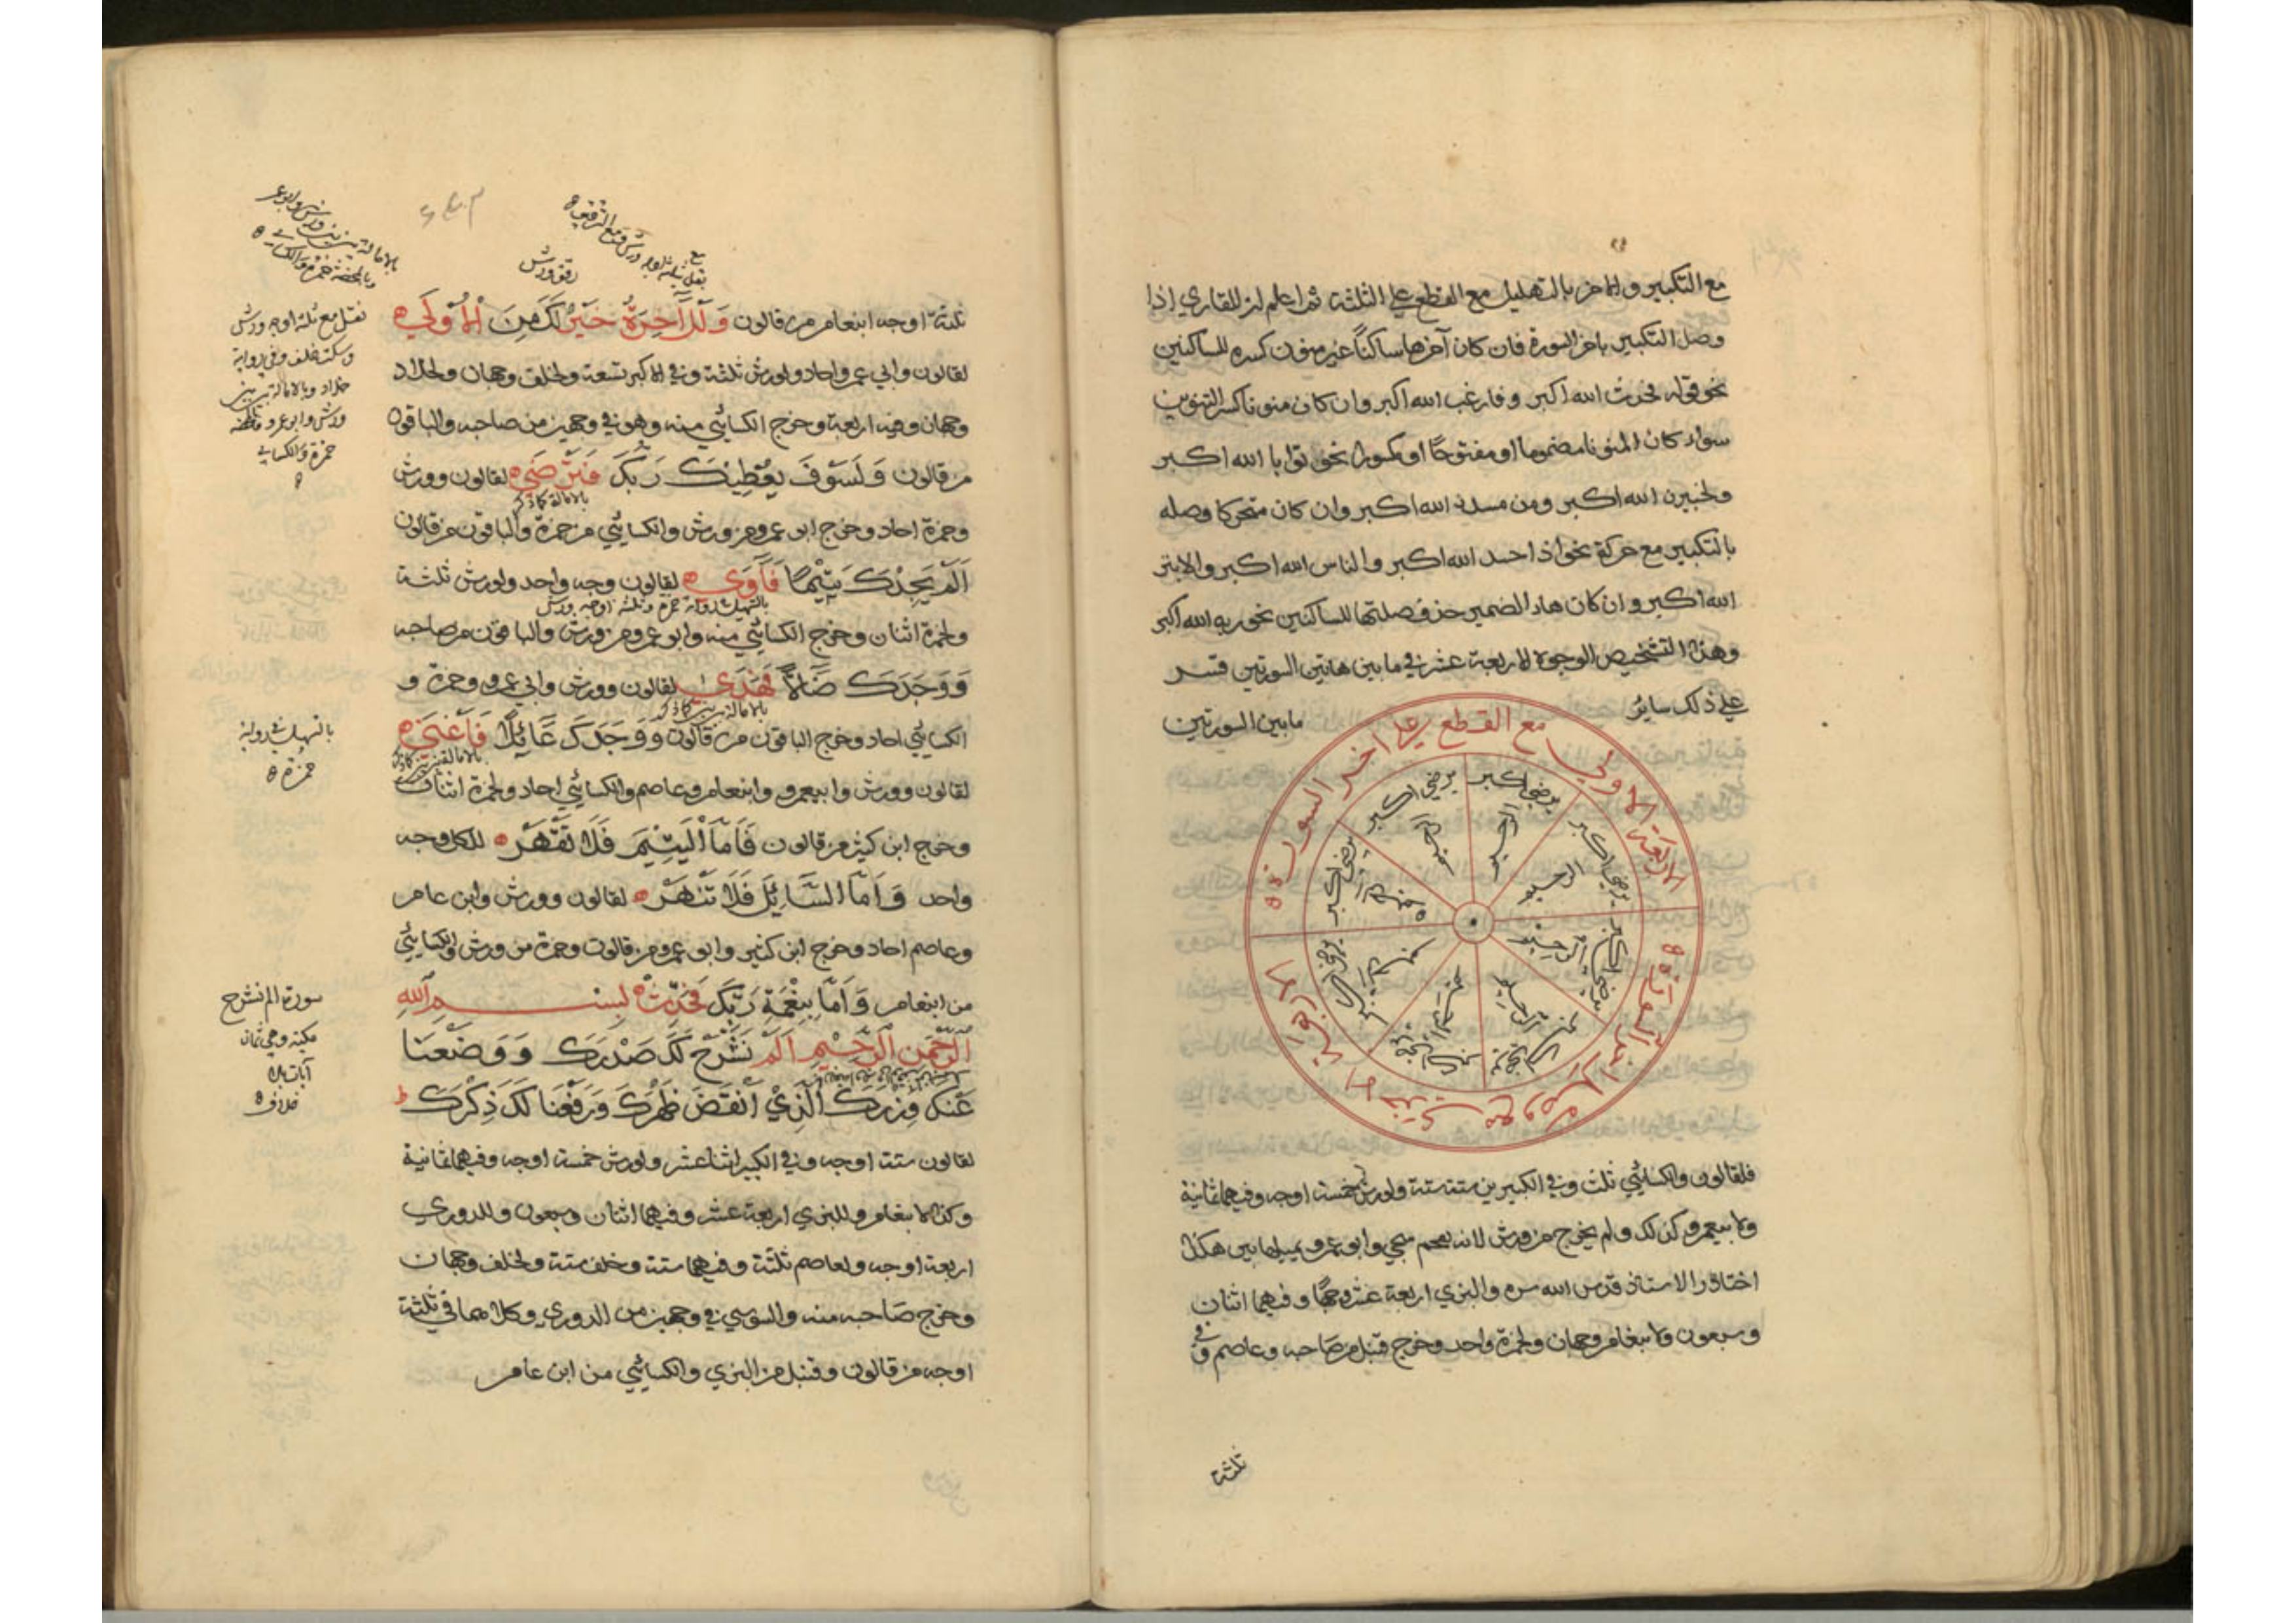 مع التكبير والاخر بالتهليل مع القطع على الثلثة ثم اعلم ان للقاري اذا
وصل التكبير باخر السورة فان كان آخرها ساكنًا غير منون كسره للساكنين
نحو قوله فحدث الله اكبر وفارغب الله اكبر وان كان منونا كسر التنوين
سواء كان المنون مضموما او مفتوحًا او مكسورا نحو توابا الله اكبر
ولخبيرن الله اكبر ومن مسدن الله اكبر وان كان متحركا وصله
بالتكبير مع حركة نحو اذا حسد الله اكبر والناس الله اكبر والابتر
الله اكبر وان كان هاء الضمير حذف صلتها للساكنين نحو ربه الله اكبر
وهذا التشخيص الوجوه الاربعة عشر في ما بين هاتين السورتين فسر
على ذلك ساير
ما بين السورتين
الاربعة الاولى مع القطع على اخر السورة
يرضى اكبر الرحيم
يرضى اكبر الرحيم
يرضى اكبر الرحيم
يرضى اكبر
فلقالون والكسائي ثلث وفي الكبيرين ستة ستة ولورش خمسة اوجه وفيهما ثمانية
ولابيعمرو كذلك ولم يخرج من ورش لانه بعجم سجي وابو عمرو يميلها بين هكذا
اختاره الاستاذ قدس الله سره والبزي اربعة عشر وجهًا وفيهما اثنان
وسبعون ولابنعامر وجهان ولحمزة واحد وخرج قنبل من صاحبه وعاصم في
ثلثة
ثلثة اوجه ابنعامر من قالون وَلَلْآخِرَةُ خَيْرٌ لَكَ مِنَ الْأُوْلَى
لقالون وابي عمرو احاد ولورش ثلثة وفي الاكبر تسعة ولخلف وجهان ولخلاد
وجهان وفيه اربعة وخرج الكسائي منه وهو في وجهين من صاحبه والباقون
من قالون وَلَسَوْفَ يُعْطِيكَ رَبُّكَ فَتَرْضَى لقالون وورش
بالامالة كما ذكر
وحمزة احاد وخرج ابو عمرو من ورش والكسائي من حمزة والباقون من قالون
اَلَمْ يَجِدْكَ يَتِيْمًا فَآوَى لقالون وجه واحد ولورش ثلثة
بالتسهيل في رواية حمزة وثلثه اوجه ورش
ولحمزة اثنان وخرج الكسائي منه وابو عمرو من ورش والباقون من صاحبه
وَوَجَدَكَ ضَالًّا فَهَدَى لقالون وورش وابي عمرو وحمزة و
الكسائي احاد وخرج الباقون من قالون وَوَجَدَكَ عَائِلًا فَاَغْنَى
لقالون وورش وابيعمرو وابنعامر وعاصم والكسائي احاد ولحمزة اثنان
وخرج ابن كثير من قالون فَاَمَّا الْيَتِيْمَ فَلَا تَقْهَرْ للكل وجه
واحد وَاَمَّا السَّائِلَ فَلَا تَنْهَرْ لقالون وورش وابن عامر
وعاصم احاد وخرج ابن كثير وابو عمرو من قالون وحمزة من ورش والكسائي
من ابنعامر وَاَمَّا بِنِعْمَةِ رَبِّكَ فَحَدِّثْ بسم الله
الرَّحْمٰنِ الرَّحِيْمِ اَلَمْ نَشْرَحْ لَكَ صَدْرَكَ وَوَضَعْنَا
عَنْكَ وِزْرَكَ الَّذِيْ اَنْقَضَ ظَهْرَكَ وَرَفَعْنَا لَكَ ذِكْرَكَ
لقالون ستة اوجه وفي الكبير اثنا عشر ولورش خمسة اوجه وفيهما ثمانية
وكذا لابنعامر وللبزي اربعة عشر وفيهما اثنان وسبعون وللدوري
اربعة اوجه ولعاصم ثلثة وفيهما ستة وخلف ستة ولخلف وجهان
وخرج صاحبه منه والسوسي في وجهين من الدوري وكلاهما في ثلثة
اوجه من قالون وقنبل من البزي والكسائي من ابن عامر
رقق ورش
نقل مع ثلثة اوجه ورش
وسكت خلف وفي رواية
خلاد وبالامالة بين بين
ورش وابو عمرو
حمزة والكسائي
بالتسهيل في رواية
حمزة
سورة الم نشرح
مكية وهي ثمان
آيات بلا
خلاف